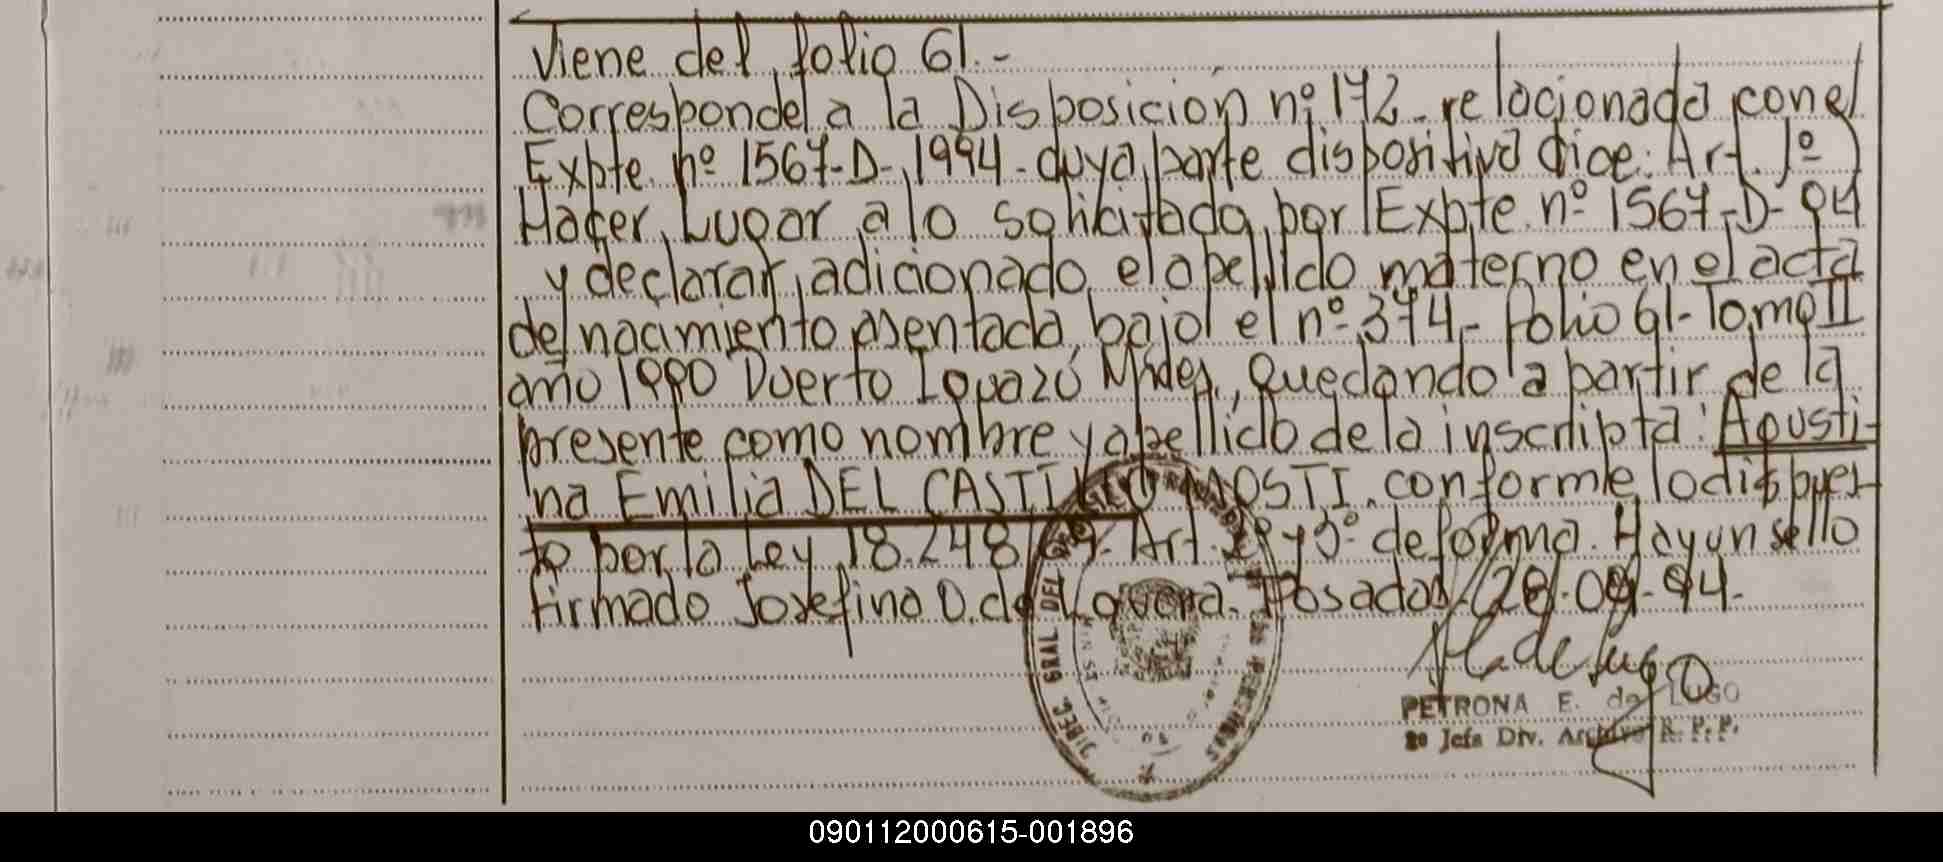 Viene del folio 61.-
Corresponde a la Disposición nº 172 - relacionada con el
Expte. nº 1567-D-1994 - cuya parte dispositiva dice: Art. 1º
Hacer Lugar a lo solicitado por Expte. nº 1567-D-94
y declarar adicionado el apellido materno en el acta
de nacimiento asentada bajo el nº 374 - folio 61 - Tomo II
año 1990 Puerto Iguazú Mnes., Quedando a partir de la
presente como nombre y apellido de la inscripta: Agusti-
na Emilia DEL CASTILLO MOSTI. conforme lo dispues-
to por la Ley 18.248/69. Art. 2º y 5º de forma. Hay un sello
firmado Josefina O. de Posadas 28.09.94.
PETRONA E. de LUGO
2º Jefa Div. Archivo R. P. P.
DIREC. GRAL DEL DE LAS PERSONAS
090112000615-001896